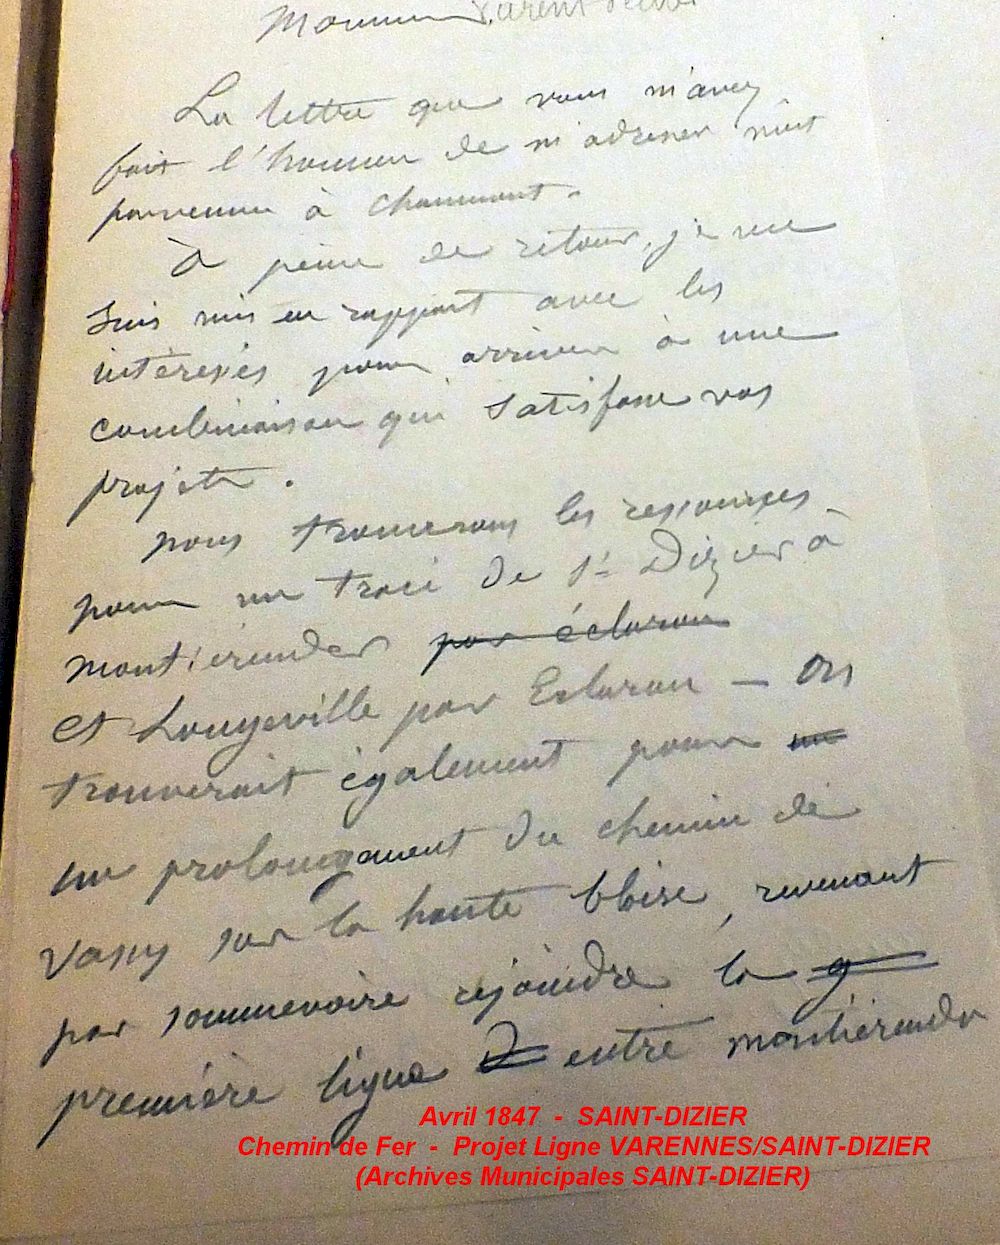 Monsieur
La lettre que vous m'avez
fait l'honneur de m'adresser m'est
parvenue à Chaumont.
À peine de retour, je me
suis mis en rapport avec les
intéressés pour arriver à une
combinaison qui satisfasse vos
projets.
nous trouverons les ressources
pour un tracé de St Dizier à
montiérender par éclaron
et Longeville par Eclaron — On
trouverait également pour un
un prolongement du chemin de
Vassy sur la haute blaise, revenant
par sommevoire rejoindre la
première ligne entre montiérender
Avril 1847 - SAINT-DIZIER
Chemin de Fer - Projet Ligne VARENNES/SAINT-DIZIER
(Archives Municipales SAINT-DIZIER)